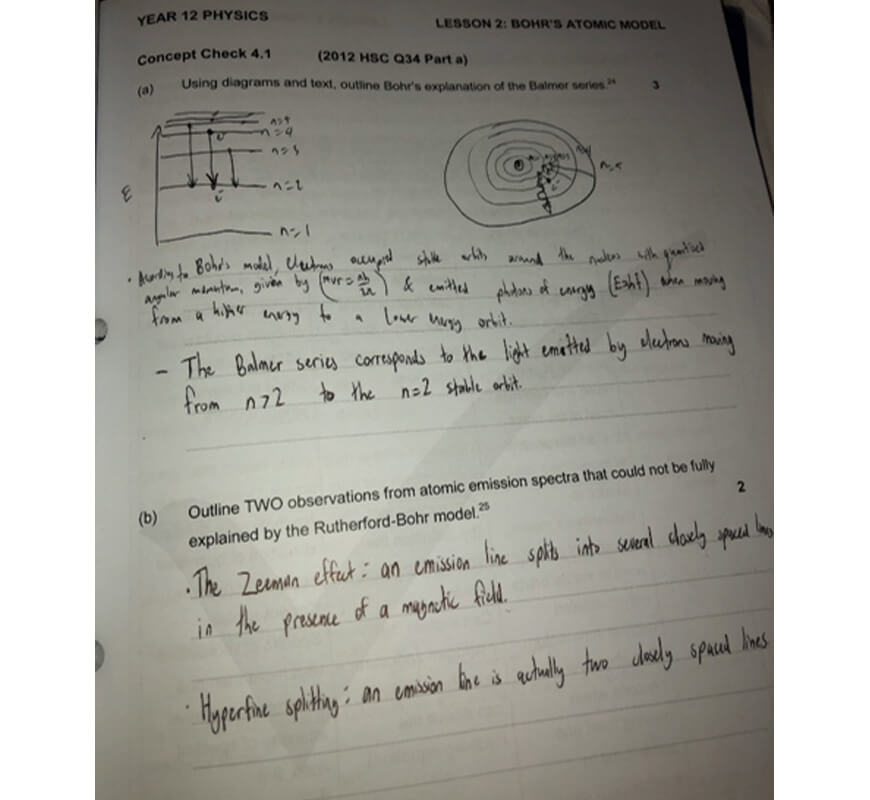 YEAR 12 PHYSICS
LESSON 2: BOHR'S ATOMIC MODEL
Concept Check 4.1 (2012 HSC Q34 Part a)
(a) Using diagrams and text, outline Bohr's explanation of the Balmer series.²⁴ 3
n=4
n=3
n=2
n=1
E
e⁻
· According to Bohr's model, electrons occupied stable orbits around the nucleus with quantised
angular momentum, given by (mvr = nh/2π) & emitted photons of energy (E=hf) when moving
from a higher energy to a lower energy orbit.
- The Balmer series corresponds to the light emitted by electrons moving
from n>2 to the n=2 stable orbit.
(b) Outline TWO observations from atomic emission spectra that could not be fully
explained by the Rutherford-Bohr model.²⁵ 2
· The Zeeman effect: an emission line splits into several closely spaced lines
in the presence of a magnetic field.
· Hyperfine splitting: an emission line is actually two closely spaced lines